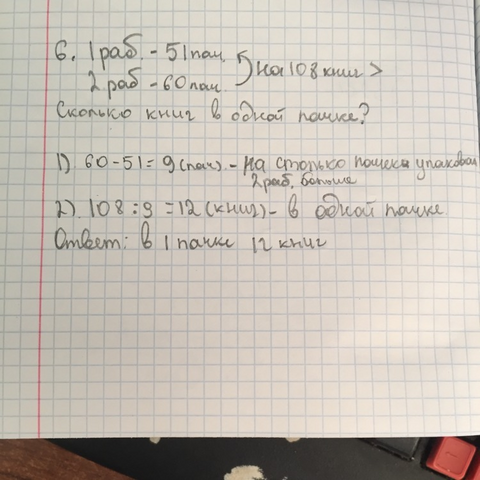 6. 1 раб. - 51 пач.
2 раб - 60 пач. на 108 книг >
Сколько книг в одной пачке?
1) 60-51 = 9 (пач) - на столько пачек упаковал
2 раб. больше
2) 108 : 9 = 12 (книг) - в одной пачке
Ответ: в 1 пачке 12 книг